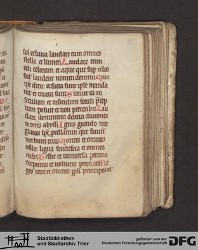 sol et luna laudate eum omnes
stelle et lumen Laudate eum
celi celorum et aque que sup celos
sut laudent nomen domini Quia
ipse dixit et facta sunt ipse manda
uit et creata sunt Statuit ea in
seculum et in seculum seculi precep
tum posuit et non preteribit Lau
date dominum de terra dracones
et omnes abyssi Ignis grando nix
glacies spc pcellarum que faciut
verbum eius Montes et omnes
colles ligna fructifera et omnes
cedri Bestie et uniuersa pecora
serpentes et volucres pennate Re
ges terre et omnes ppli principes et
Stadtbibliothek
und Stadtarchiv Trier
gefördert von der
Deutschen Forschungsgemeinschaft
DFG